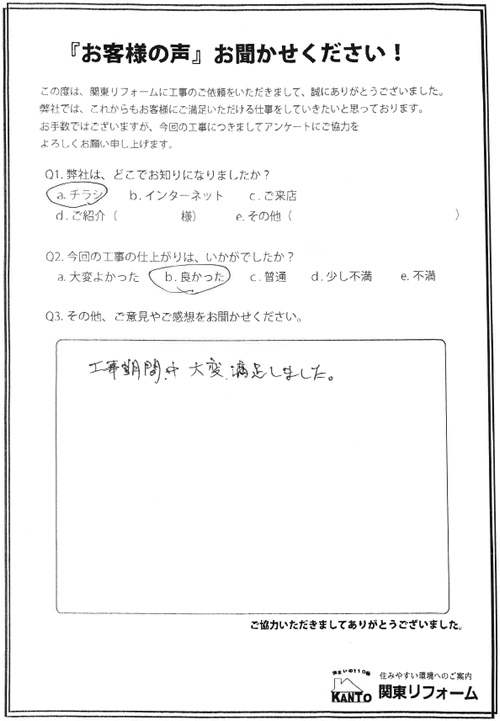 『お客様の声』お聞かせください！
この度は、関東リフォームに工事のご依頼をいただきまして、誠にありがとうございました。
弊社では、これからもお客様にご満足いただける仕事をしていきたいと思っております。
お手数ではございますが、今回の工事につきましてアンケートにご協力を
よろしくお願い申し上げます。
Q1. 弊社は、どこでお知りになりましたか？
a. チラシ　b. インターネット　c. ご来店
d. ご紹介（　　　　様）　e. その他（　　　　　　　　　　）
Q2. 今回の工事の仕上がりは、いかがでしたか？
a. 大変よかった　b. 良かった　c. 普通　d. 少し不満　e. 不満
Q3. その他、ご意見やご感想をお聞かせください。
工事期間中 大変、満足しました。
ご協力いただきましてありがとうございました。
住まいの110番
KANTO
住みやすい環境へのご案内
関東リフォーム